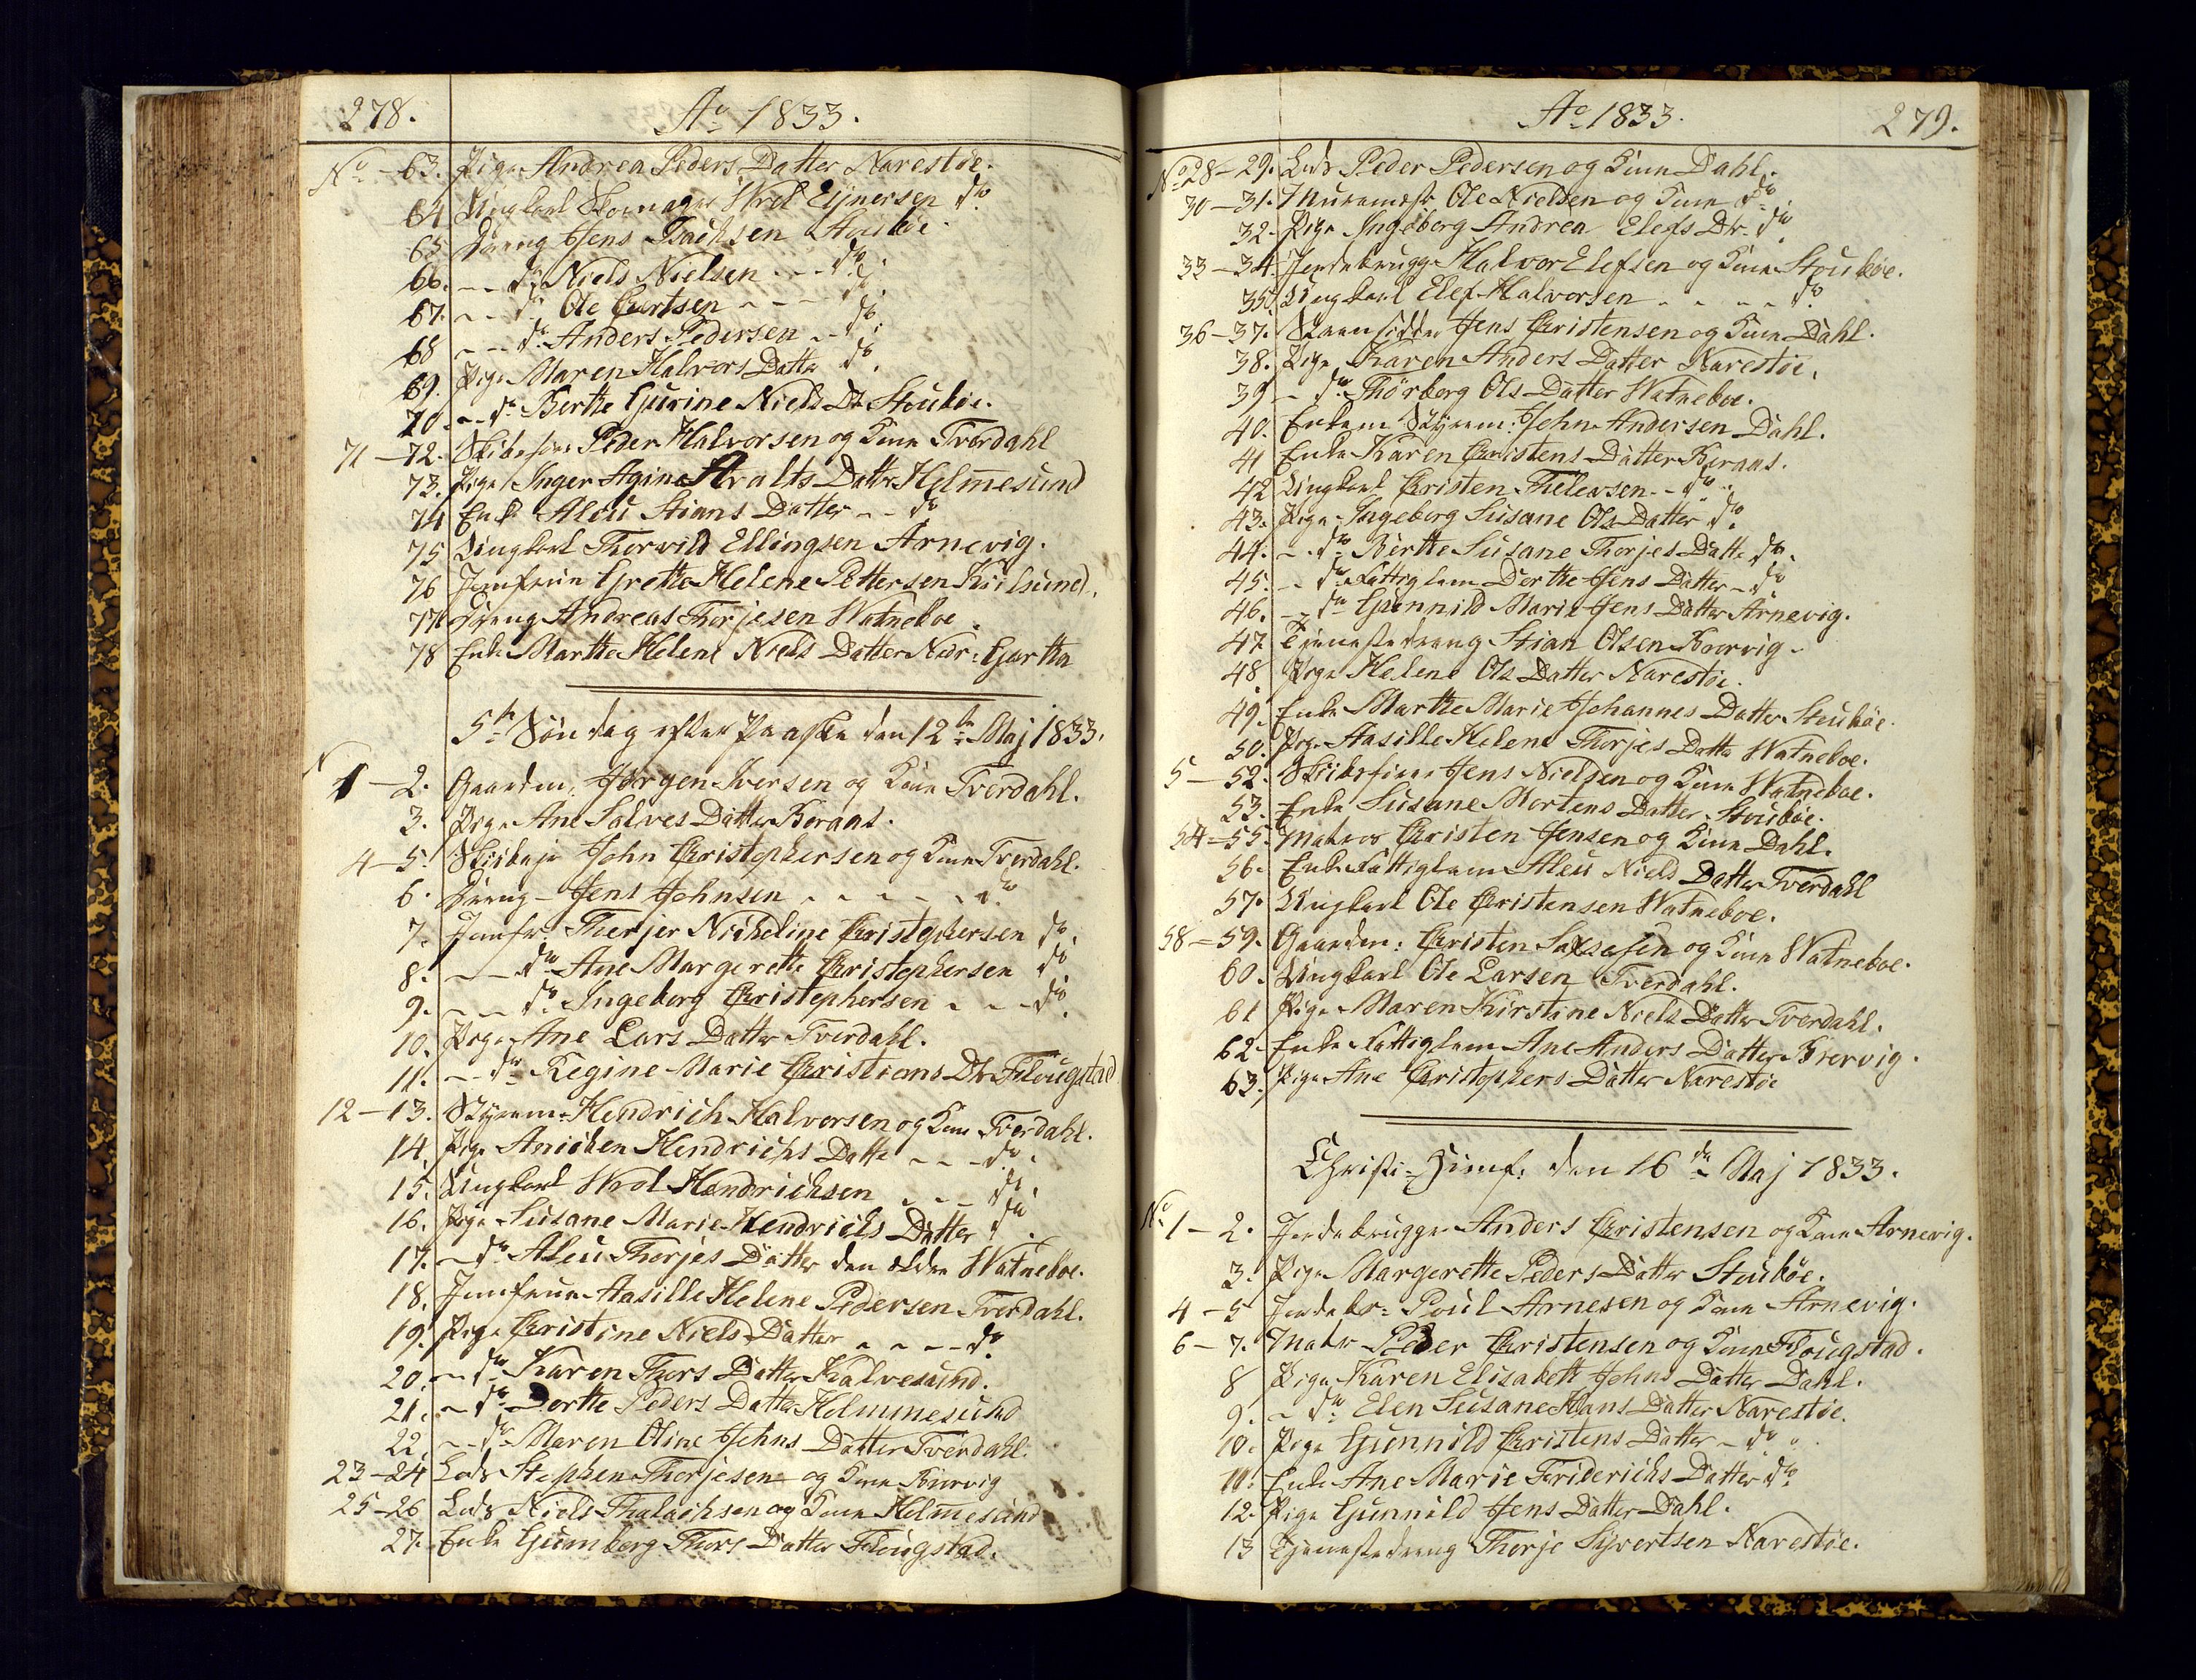 278. Ao 1833.
No - 63. Pige Andrea Peders Datter Narestöe.
64 Ungkarl Skomager Wrol Ejnersen do
65 Dreng Jens Isachsen Stouböe.
66. -- do Niels Nielsen --- do
67. -- do Ole Gurtsen --- do
68 -- do Anders Pedersen -- do
69. Pige Maren Halvors Datter do
70. -- do Berthe Gurine Niels Dr. Stouböe.
71 - 72. Skibsfører Peder Halvorsen og Kone Tverdahl
73. Pige Inger Agine Aralts Datter Holmesund
74 Enke Aleu Stians Datter -- do
75 Ungkarl Thorvild Ellingsen Arnevig.
76 Jomfrue Grethe Helene Pettersen Kiilsund.
77 Dreng Andreas Thorjesen Watneboe.
78 Enke Marthe Helene Niels Datter Nedr: Gjertha
5te Søndag efter Paaske den 12te Maj 1833.
N 1 - 2. Gaardm. Jørgen Iversen og Kone Tverdahl.
3. Pige Ane Salves Datter Boraas.
4 - 5. Skibsej John Christophersen og Kone Tverdahl.
6. Dreng - Jens Johnsen - - - - - do
7. Jomfr. Therjer Nicheline Christophersen do
8. -- do Ane Margerette Christophersen do
9. -- do Ingeborg Christophersen --- do
10. Pige Ane Lars Datter Tverdahl.
11. -- do Regine Marie Christians Dtr Flougstad
12 - 13. Styrem: Hendrich Halvorsen og Kone Tverdahl.
14. Pige Anichen Hendrichs Datter --- do
15. Ungkarl Wrol Hendrichsen --- do
16. Pige Susane Marie Hendrichs Datter do
17. - do Aleu Thorjes Datter den ældre Watneboe.
18. Jomfrue Aasille Helene Pedersen Tverdahl.
19. Pige Christine Niels Datter - - - - do
20. -- do Karen Thors Datter Kalvesund.
21. - do Dorthe Peders Datter Holmmesund
22. -- do Maren Oline Johns Datter Tverdahl.
23 - 24 Lods Stephen Thorjesen og Kone Borvig
25 - 26 Lods Niels Thalachsen og Kone Holmesund
27. Enke Gunnborg Thors Datter Flougstad.
Ao 1833. 279.
No 28 - 29. Lods Peder Pedersen og Kone Dahl.
30 - 31. Muremestr Ole Nielsen og Kone do
32. Pige Ingeborg Andrea Elefs Dr. do
33 - 34. Jordbrugg Halvor Elefsen og Kone Stouböe.
35 Ungkarl Elef Halvorsen - - - - do
36 - 37. Strandsidder Jens Christensen og Kone Dahl.
38. Pige Karen Anders Datter Narestöe.
39 - do Thorborg Ols Datter Watneboe.
40. Enkem Styrem: John Andersen Dahl.
41 Enke Karen Christens Datter Boraas.
42 Ungkarl Christen Thelevsen -- do
43. Pige Ingeborg Susane Ols Datter do
44. -- do Berthe Susane Thorjes Datte do
45. -- do Fattiglem Dorthe Jens Datter - do
46. -- do Gunnild Marie Jens Datter Arnevig.
47 Tjenestedreng Stian Olsen Borvig.
48 Pige Helene Ols Datter Narestöe.
49. Enke Marthe Marie Johannes Datter Stouböe.
50. Pige Aasille Helene Thorjes Datte Watneboe.
5 - 52. Skibsfører Jens Nielsen og Kone Watneboe.
53. Enke Susane Mortens Datter Stouböe.
54 - 55. Matros Christen Jensen og Kone Dahl.
56. Enke Fattiglem Aleu Niels Datter Tverdahl
57. Ungkarl Ole Christensen Watneboe.
58 - 59. Gaardm: Christen Saxesen og Kone Watneboe.
60. Ungkarl Ole Larsen Tverdahl.
61 Pige Maren Kirstine Niels Datter Tverdahl.
62. Enke Fattiglem Ane Anders Datter Borvig.
63. Pige Ane Christophers Datter Narestöe
Christi-Himf: den 16de Maj 1833.
No 1 - 2. Jordebrugge Anders Christensen og Kone Arnevig.
3. Pige Margerette Peders Datter Stouböe.
4 - 5 Jordebr: Poul Arnesen og Kone Arnevig.
6 - 7. Matr Peder Christensen og Kone Flougstad.
8 Pige Karen Elisabeth Johns Datter Dahl.
9. - do Elen Susane Hans Datter Narestöe.
10. Pige Gunnild Christens Datter - do
11. Enke Ane Marie Friderichs Datter do
12. Pige Gunnild Jens Datter Dahl.
13 Tjenestedreng Thorje Syvertsen Narestöe.